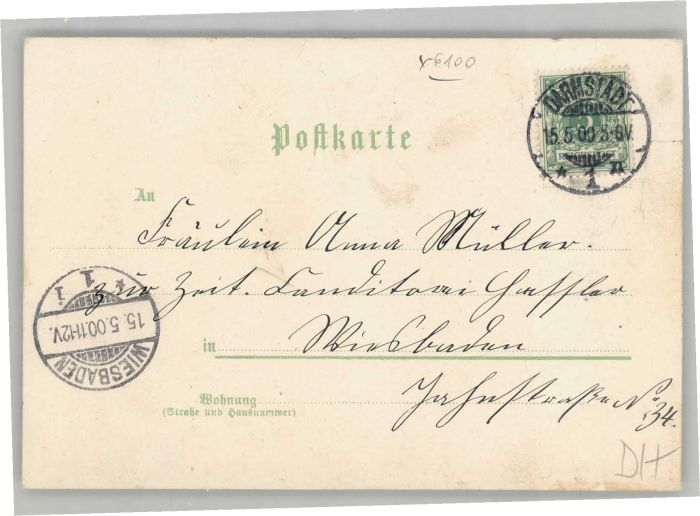 DARMSTADT
15.5.00.5-6V.
* 1 n
Postkarte
An
Fräulein Anna Müller.
zur Zeit. Canditorai Hassler
in Wiesbaden
Wohnung
(Straße und Hausnummer)
Jahnstraße No 34.
* 1 i
15.5.00.11-12V.
WIESBADEN
D/H